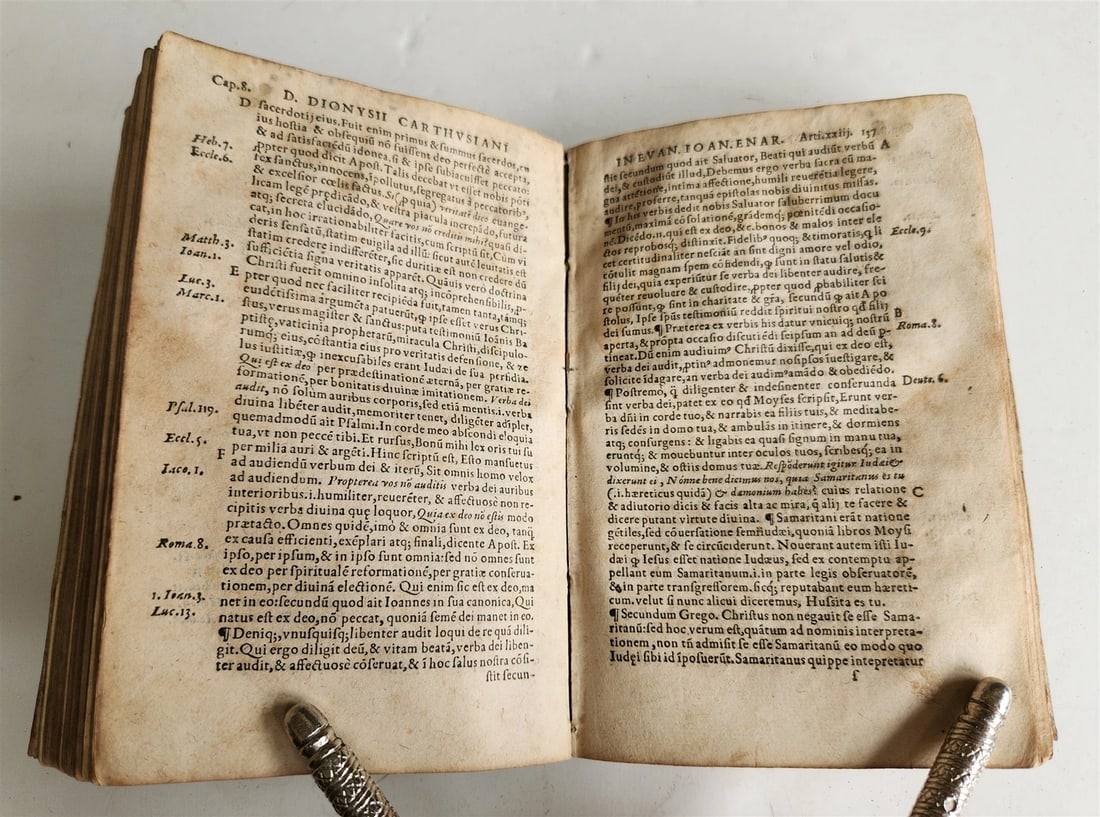 Cap.8. D. DIONYSII CARTHVSIANI
D sacerdotij eius. Fuit enim primus & summus sacerdos, cū
ius hostia & obsequiū nō fuissent deo perfectè accepta,
Heb.7. & ad satisfaciēdū idonea, si & ipse subiacuisset peccato:
Eccle.6. ꝓpter quod dicit Apost. Talis decebat vt esset nobis pōti
fex sanctus, innocens, īpollutus, segregatus à peccatoribꝰ,
& excelsior cœlis factus. Si (quia) veritatē dico euange-
licam legē prędicādo, & vestra piacula increpādo, futura
atq; secreta elucidādo, Quare vos nō creditis mihi? quasi di-
cat, in hoc irrationabiliter facitis, cum scriptū sit, Cum vi
deris sensatū, statim euigila ad illū: sicut autē leuitatis est
Matth.3. statim credere indifferēter, sic duritiæ est non credere dū
Ioan.1. sufficiētia signa veritatis apparēt. Quāuis verò doctrina
Christi fuerit omnino insolita atq; incōprehensibilis, ꝓ-
E pter quod nec faciliter recipiēda fuit, tamen tanta, tāmq;
Luc.3. euidētissima argumēta patuerūt, ꝙ ipse esset verus Chri-
Marc.1. stus, verus magister & sanctus: puta testimoniū Ioānis Ba
ptistę, vaticinia prophetarū, miracula Christi, discipulo-
rumq; eius, cōstantia eius pro veritatis defensione, & ze
lus iustitiæ, ꝙ inexcusabiles erant Iudæi de sua perfidia.
Qui est ex deo per prædestinationē æternā, per gratiæ re-
formationē, per bonitatis diuinæ imitationem. Verba dei
audit, nō solum auribus corporis, sed etiā mentis. i. verba
diuina libēter audit, memoriter tenet, diligēter adīplet,
Psal.119. quemadmodū ait Psalmi. In corde meo abscondi eloquia
tua, vt non peccē tibi. Et rursus, Bonū mihi lex oris tui su
Eccl.5. per milia auri & argēti. Hinc scriptū est, Esto mansuetus
F ad audiendū verbum dei & iterū, Sit omnis homo velox
Iaco.1. ad audiendum. Propterea vos nō auditis verba dei auribus
interioribus. i. humiliter, reuerēter, & affectuosè non re-
cipitis verba diuina quę loquor, Quia ex deo nō estis modo
prætacto. Omnes quidē, imò & omnia sunt ex deo, tanq̄
ex causa efficienti, exēplari atq; finali, dicente Apost. Ex
Roma.8. ipso, per ipsum, & in ipso sunt omnia: sed nō omnes sunt
ex deo per spiritualē reformationē, per gratiæ conserua-
tionem, per diuinā electionē. Qui enim sic est ex deo, ma
1. Ioan.3. net in eo: secundū quod ait Ioannes in sua canonica, Qui
Luc.13. natus est ex deo, nō peccat, quoniā semē dei manet in eo.
¶ Deniq;, vnusquisq; libenter audit loqui de re quā dili-
git. Qui ergo diligit deū, & vitam beatā, verba dei liben-
ter audit, & affectuosè cōseruat, & ī hoc salus nostra cōsi-
stit secun-
IN EVAN. IOAN. ENAR. Arti.xxiij. 157
stit secundum quod ait Saluator, Beati qui audiūt verbū A
dei, & custodiūt illud, Debemus ergo verba sacra cū ma-
gna attētione, intima affectione, humili reuerētia legere,
audire, proferre, tanquā epistolas nobis diuinitus missas.
¶ In his verbis dedit nobis Saluator saluberrimum docu
mentū, maximā cōsolationē, grādemq; pœnitēdi occasio-
nē. Dicēdo. n. qui est ex deo, &c. bonos & malos inter ele
ctos reprobosq; distinxit. Fidelibꝰ quoq; & timoratis, q̄ li Eccle.9.
cet certitudinaliter nesciāt an sint digni amore vel odio,
cōtulit magnam spem cōfidendi, ꝙ sunt in statu salutis &
filij dei, quia experiūtur se verba dei libenter audire, fre-
quēter reuoluere & custodire. ꝓpter quod ꝓbabiliter sci
re possunt, ꝙ sint in charitate & grā, secundū ꝙ ait Apo
stolus, Ipse spūs testimoniū reddit spiritui nostro qđ filij
dei sumus. ¶ Præterea ex verbis his datur vnicuiq; nostrū B
aperta, & prōpta occasio discutiēdi seipsum an ad deū p- Roma.8.
tineat. Dū enim audiuimꝰ Christū dixisse, qui ex deo est,
verba dei audit, ꝓtinꝰ admonemur nosipsos īuestigare, &
solicite īdagare, an verba dei audimꝰ amādo & obediēdo.
¶ Postremò, q̄ diligenter & indesinenter conseruanda Deute.6.
sint verba dei, patet ex eo qđ Moyses scripsit, Erunt ver-
ba dn̄i in corde tuo, & narrabis ea filiis tuis, & meditabe-
ris sedēs in domo tua, & ambulās in itinere, & dormiens
atq; consurgens: & ligabis ea quasi signum in manu tua,
eruntq; & mouebuntur inter oculos tuos, scribesq; ea in
volumine, & ostiis domus tuæ. Respōderunt igitur Iudæi &
dixerunt ei, Nónne bene dicimus nos, quia Samaritanus es tu
(.i. hæreticus quidā) & dæmonium habes? cuius relatione C
& adiutorio dicis & facis alta ac mira, q̄ alij te facere &
dicere putant virtute diuina. ¶ Samaritani erāt natione
gētiles, sed cōuersatione semiiudæi, quoniā libros Moysi
receperunt, & se circūciderunt. Nouerant autem isti Iu-
dæi ꝙ Iesus esset natione Iudæus, sed ex contemptu ap-
pellant eum Samaritanum. i. in parte legis obseruatorē,
& in parte transgressorem. sicq; reputabant eum hæreti-
cum. velut si nunc alicui diceremus, Hussita es tu.
¶ Secundum Grego. Christus non negauit se esse Sama-
ritanū: sed hoc verum est, quātum ad nominis interpreta-
tionem, non tn̄ admisit se esse Samaritanū eo modo quo
Iudęi sibi id īposuerūt. Samaritanus quippe intepretatur
f